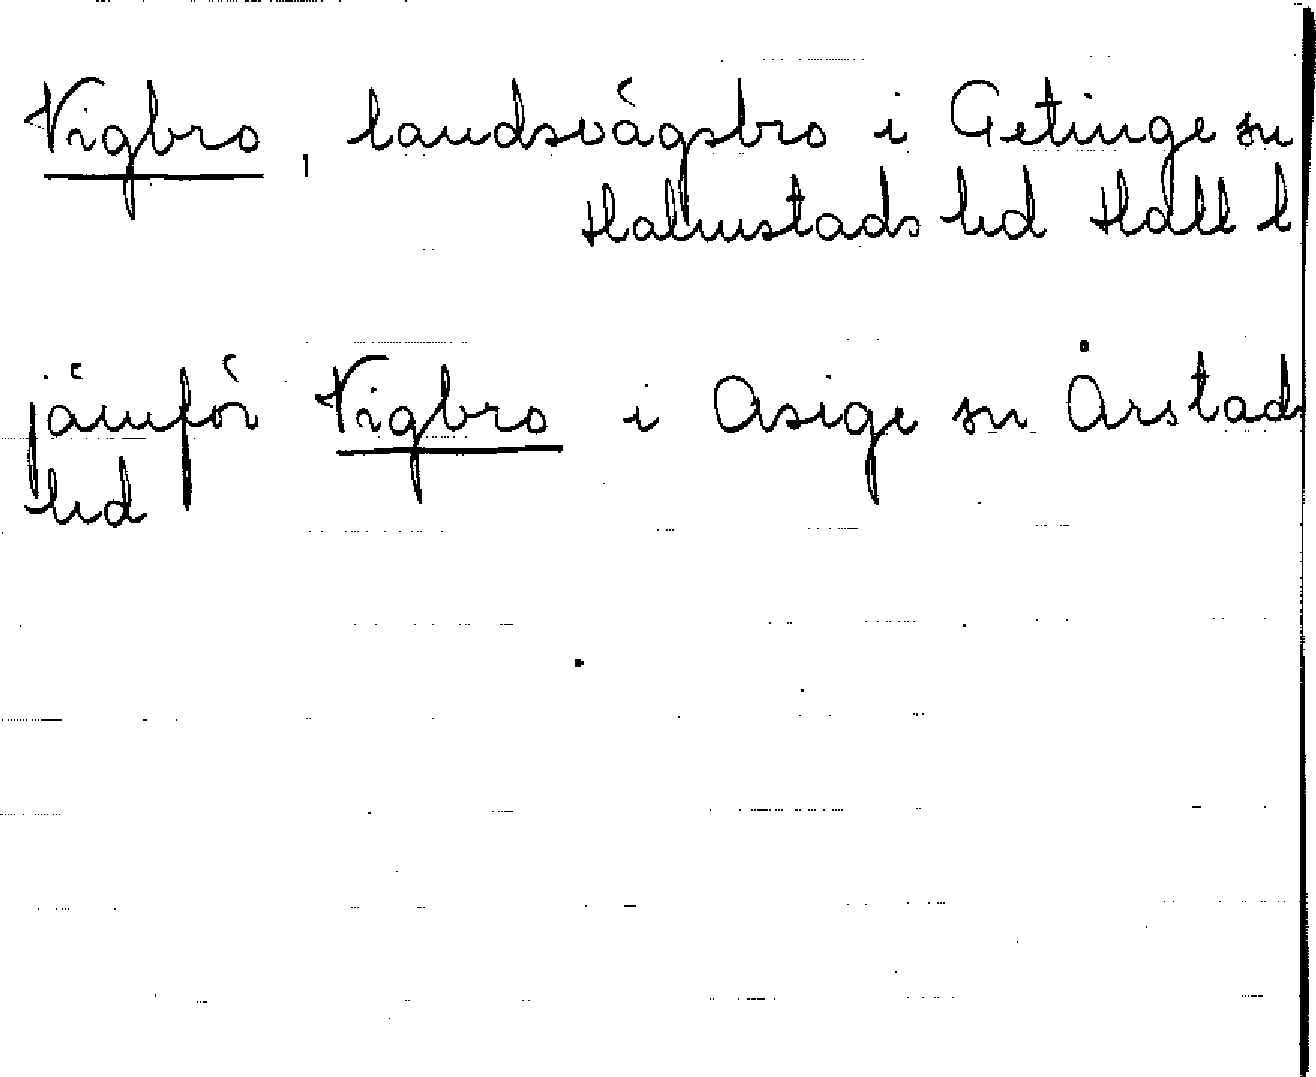 Vigbro, landsvägsbro i Getinge sn
Halmstads hd Hall l
jämför Vigbro i Asige sn Årstads
hd